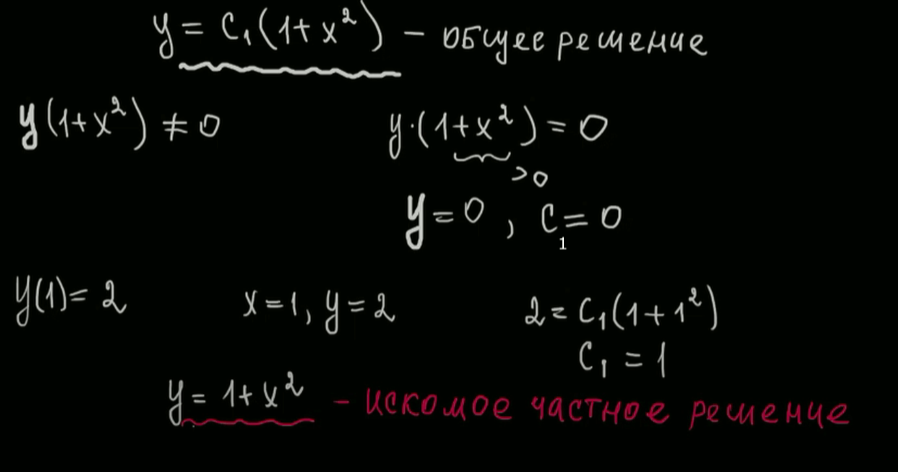 y = C₁(1+x²) – общее решение
y(1+x²) ≠ 0    y·(1+x²) = 0
>0
y = 0, C₁ = 0
y(1) = 2    x=1, y=2    2 = C₁(1+1²)
C₁ = 1
y = 1+x² – искомое частное решение